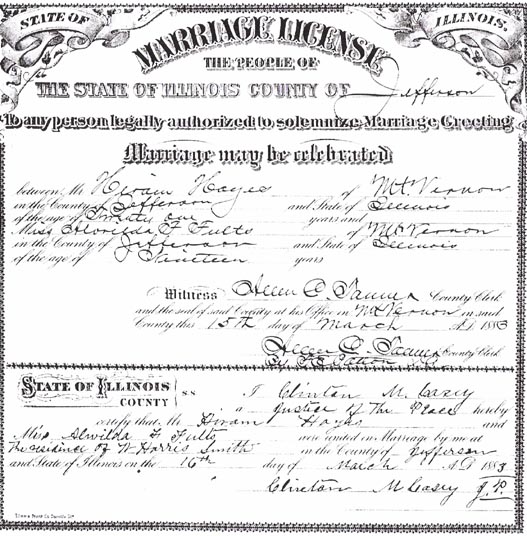 STATE OF ILLINOIS.
MARRIAGE LICENSE.
THE PEOPLE OF
THE STATE OF ILLINOIS COUNTY OF Jefferson
To any person legally authorized to solemnize Marriage Greeting
Marriage may be celebrated
between Mr Hiram Hayes of Mt Vernon
in the County of Jefferson and State of Illinois
of the age of Twenty one years and
Miss Alwilda F Fults of Mt Vernon
in the County of Jefferson and State of Illinois
of the age of Nineteen years
Witness C. County Clerk
and the seal of said County at his Office in Mt Vernon in said
County this 15th day of March A.D. 1883
C. County Clerk
By
STATE OF ILLINOIS
COUNTY SS I Clinton M Casey
a Justice of the Peace hereby
certify that Mr Hiram Hayes and
Miss Alwilda F Fults were united in Marriage by me at
the residence of W Harris Smith in the County of Jefferson
and State of Illinois on the 16th day of March A.D. 1883
Clinton M Casey J.P.